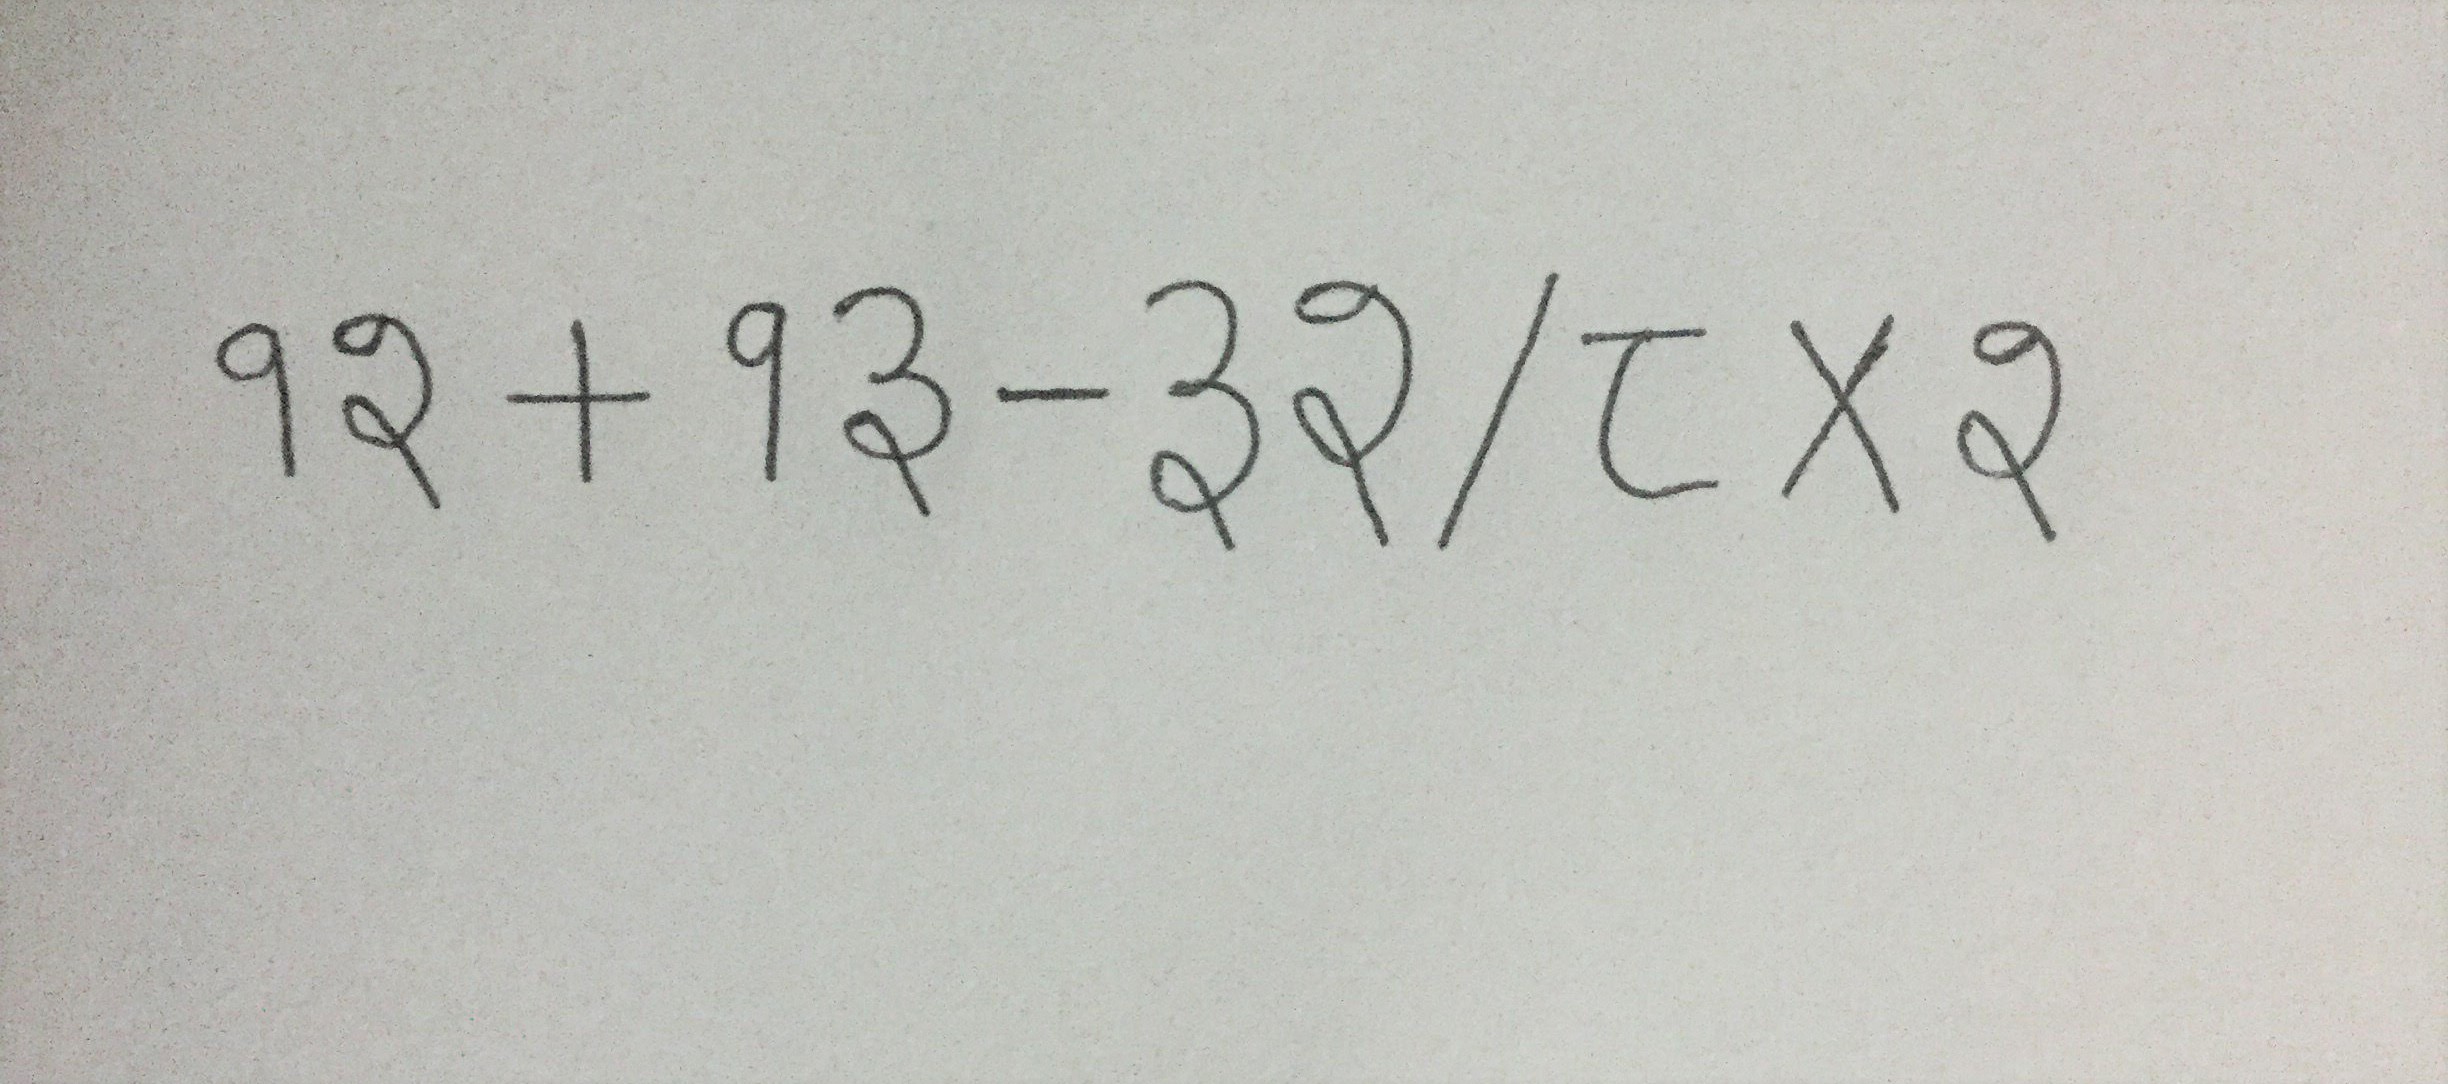 १२+१३-३२/८×२